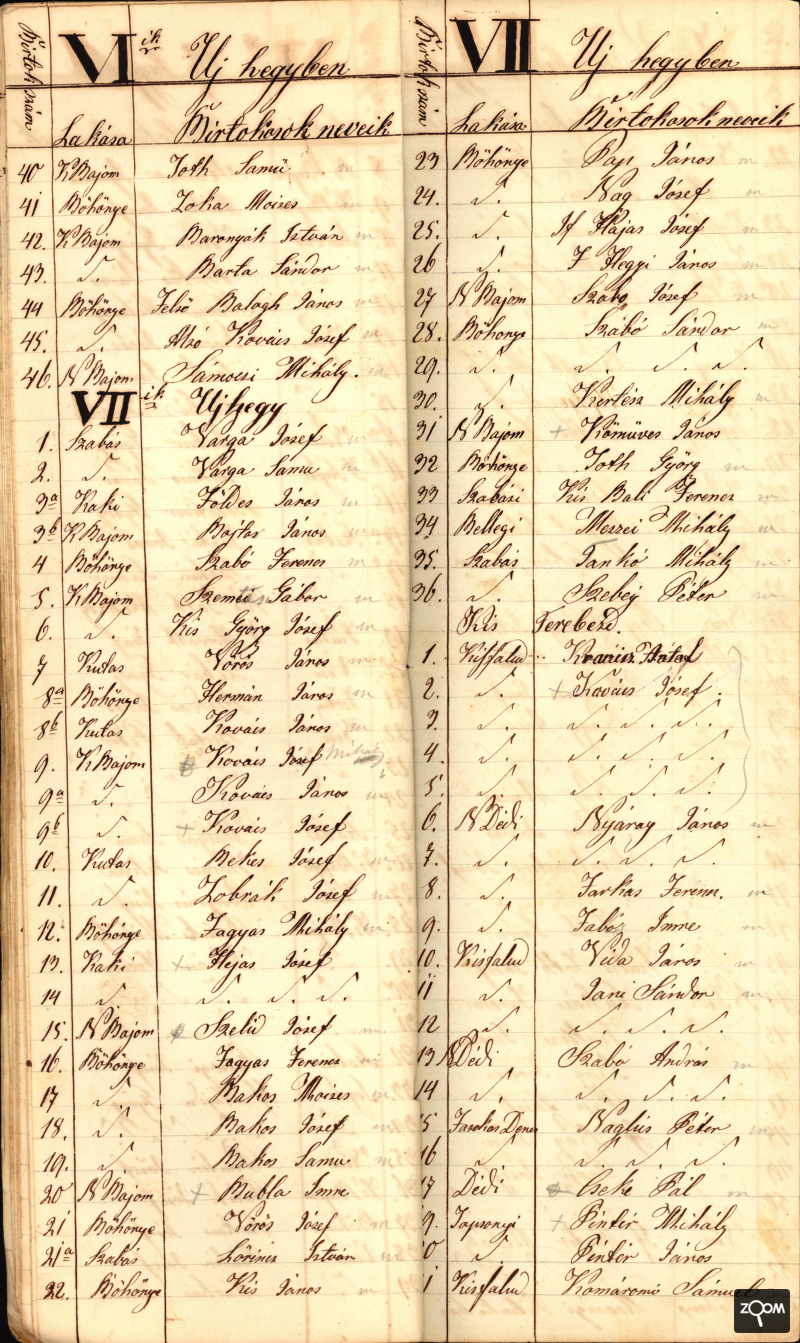 Birtok szám VI ik Uj hegyben
Lakása Birtokosok neveik
40 K Bajom Toth Samu m
41 Böhönye Zoka Moises m
42. K Bajom Baronyák István m
43. ". Barta Sándor m
44 Böhönye Felső Balogh János m
45. ". Alsó Kovács Jósef m
46. N Bajom Sámocsi Mihály. m
VII ik Ujhegy
1. Szabás Varga Jósef m
2. ". Varga Samu m
3a Kaki Földes János m
3b K Bajom Bojtos János m
4 Böhönye Szabó Ferencz m
5. K Bajom Gábor m
6. ". Kis Györg Jósef m
7 Kutas Vörös János m
8a Böhönye Hermán János m
8b Kutas Kovács János m
9. K Bajom Kovács Jósef Mihály
9a ". Kovács János m
9b ". + Kovács Jósef
10. Kutas Bekes Jósef m
11. ". Zobrák Jósef m
12. Böhönye Fagyas Mihály m
13. Kaki + Hejas Jósef
14 ". ". ". ".
15. N Bajom Szelid Jósef m
16. Böhönye Fagyas Ferencz m
17 ". Bakos Moises m
18. ". Bakos Jósef m
19. ". Bakos Samu m
20 N Bajom + Bubla Imre
21 Böhönye Vörös Jósef m
21a Szabás Lőrincz István m
22. Böhönye Kis János m
Birtok szám VII Uj hegyben
Lakása Birtokosok neveik
23 Böhönye Pap János m
24. ". Nag Jósef m
25. ". If Hajas Jósef m
26 ". I Hegyi János m
27 N Bajom Szabo Jósef m
28. Böhönye Szabó Sándor m
29. ". ". ". ".
30. ". Kertész Mihály m
31 N Bajom + Kőmüves János
32 Böhönye Toth Györg m
33 Szabási Kis Bali Ferencz m
34 Bellegi Mezzei Mihály m
35. Szabás Jankó Mihály m
36. ". Péter m
Kis Terebezd.
1. Kisfalud
2. ". + Kovács Jósef.
3. ". ". ". ".
4. ". ". ". ".
5. ". ". ". ".
6. N Dédi Nyáray János m
7. ". ". ". ".
8. ". Farkas Ferencz. m
9. ". Imre m
10. Kisfalud Vida János m
11 ". Jani Sándor m
12 ". ". ". ".
13 N Dédi Szabó András m
14 ". ". ". ".
5 Péter m
16 ". ". ". ".
7 Dédi Cseke Pál m
9. + Pintér Mihály
0 ". Pintér János
1 Kisfalud Komáromi Sámuel
ZOOM